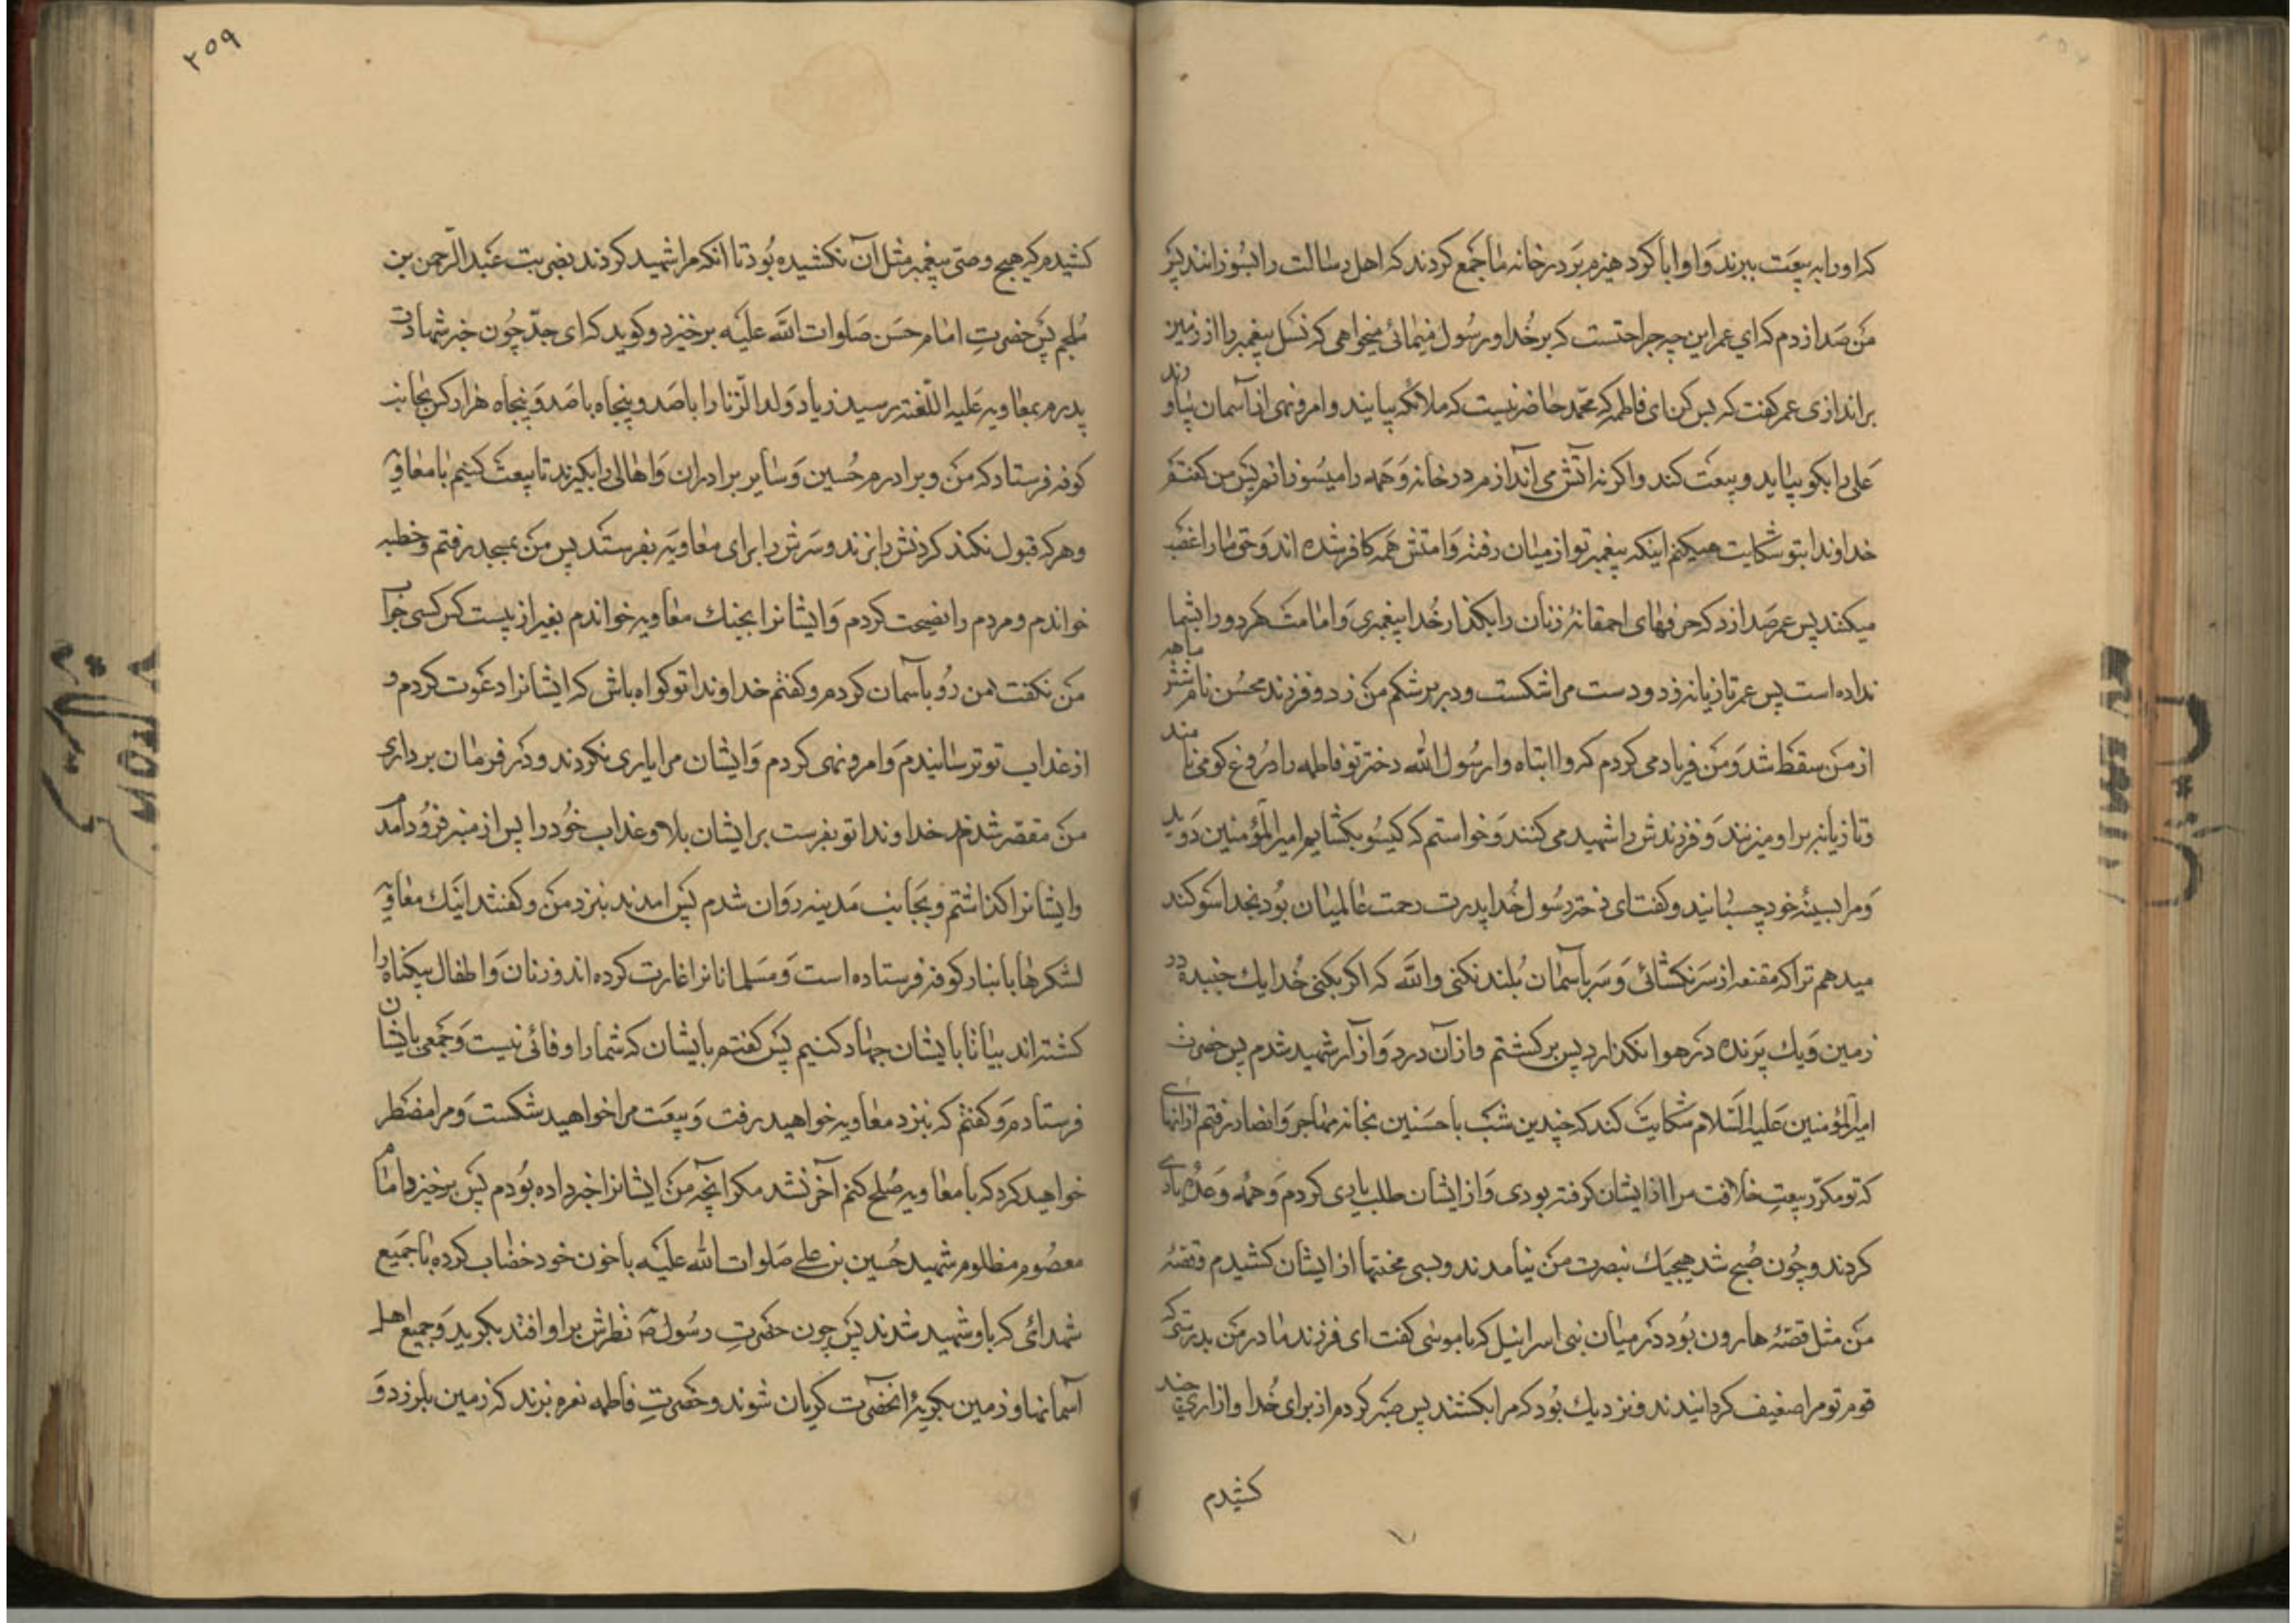 که او را به بیعت ببرند و او ابا کرد هیزم بر در خانه ما جمع کردند که اهل رسالت را بسوزانند پس
من صدا زدم که ای عمر این چه جراتست که بر خدا و رسول مینمائی میخواهی که نسل پیغمبر را از زمین
براندازی عمر گفت که بس کن ای فاطمه که محمد حاضر نیست که ملائکه بیایند و امر و نهی از آسمان بیاورند
علی را بگو بیاید و بیعت کند و اگر نه آتش می اندازم در خانه و همه را میسوزانم پس من گفتم
خداوندا بتو شکایت میکنم اینکه پیغمبر تو از میان رفته و امتش همه کافر شده اند و حق ما را غصب
میکنند پس عمر صدا زد که حرفهای احمقانهٔ زنان را بگذار خدا پیغمبری و امامت هر دو را بشما
نداده است پس عمر تازیانه زد و دست مرا شکست و در بر شکم من زد و فرزند محسن نام ششماهه
از من سقط شد و من فریاد می کردم که وا ابتاه وا رسول الله دختر تو فاطمه را دروغ گو می نامند
و تازیانه بر او میزنند و فرزندش را شهید می کنند و خواستم که گیسو بگشایم امیرالمؤمنین دوید
و مرا بسینهٔ خود چسبانید و گفت ای دختر رسول خدا پدرت رحمت عالمیان بود بخدا سوگند
میدهم ترا که مقنعه از سر نگشائی و سر بآسمان بلند نکنی والله که اگر بکنی خدا یک جنبنده در
زمین و یک پرنده در هوا نگذارد پس برگشتم و از آن درد و آزار شهید شدم پس حضرت
امیرالمؤمنین علیه السلام شکایت کند که چندین شب با حسنین بخانه مهاجر و انصار رفتم از آنهائی
که تو مکرر بیعت خلافت مرا از ایشان گرفته بودی و از ایشان طلب یاری کردم و همه وعدهٔ یاری
کردند و چون صبح شد هیچیک بنصرت من نیامدند و بسی محنتها از ایشان کشیدم و قصهٔ
من مثل قصهٔ هارون بود در میان بنی اسرائیل که با موسی گفت ای فرزند مادر من بدرستی که
قوم تو مرا ضعیف گردانیدند و نزدیک بود که مرا بکشند پس صبر کردم از برای خدا و آزاری چند
کشیدم
۲۵۹
کشیدم که هیچ وصی پیغمبر مثل آن نکشیده بود تا آنکه مرا شهید کردند بضربت عبدالرحمن بن
ملجم پس حضرت امام حسن صلوات الله علیه برخیزد و گوید که ای جد چون خبر شهادت
پدرم بمعاویه علیه اللعنة رسید زیاد ولدالزنا را با صد و پنجاه با صد و پنجاه هزار کس بجانب
کوفه فرستاد که من و برادرم حسین و سایر برادران و اهالی را بگیرند تا بیعت کنیم با معاویه
و هر که قبول نکند گردنش را بزند و سرش را برای معاویه بفرستد پس من بمسجد رفتم و خطبه
خواندم و مردم را نصیحت کردم و ایشانرا بجنگ معاویه خواندم بغیر از بیست کس کسی جواب
من نگفت من رو بآسمان کردم و گفتم خداوندا تو گواه باش که ایشانرا دعوت کردم و
از عذاب تو ترسانیدم و امر و نهی کردم و ایشان مرا یاری نکردند و در فرمان برداری
من مقصر شدند خداوندا تو بفرست بر ایشان بلا و عذاب خود را پس از منبر فرود آمدم
و ایشانرا گذاشتم و بجانب مدینه روان شدم پس آمدند بنزد من و گفتند اینک معاویه
لشکرها بانبار و کوفه فرستاده است و مسلمانانرا غارت کرده اند و زنان و اطفال بیگناه را
کشته اند بیا تا با ایشان جهاد کنیم پس گفتم بایشان که شما را وفائی نیست و جمعی با ایشان
فرستادم و گفتم که بنزد معاویه خواهید رفت و بیعت مرا خواهید شکست و مرا مضطر
خواهید کرد که با معاویه صلح کنم آخر نشد مگر آنچه من ایشانرا خبر داده بودم پس برخیزد امام
معصوم مظلوم شهید حسین بن علی صلوات الله علیه با خون خود خضاب کرده با جمیع
شهدائی که با او شهید شدند پس چون حضرت رسول ص نظرش بر او افتد بگرید و جمیع اهل
آسمانها و زمین بگریهٔ آنحضرت گریان شوند و حضرت فاطمه نعره بزند که زمین بلرزد و